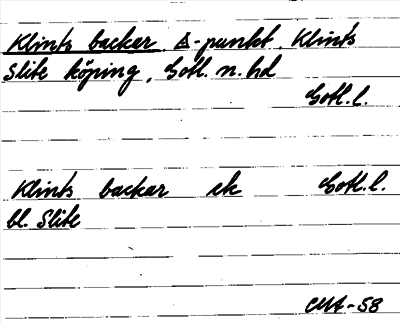 Klints backar, Δ-punkt, Klints
Slite köping, Gotl. n. hd
Gotl. l.
Klints backar ek Gotl. l.
bl. Slite
CMA-58